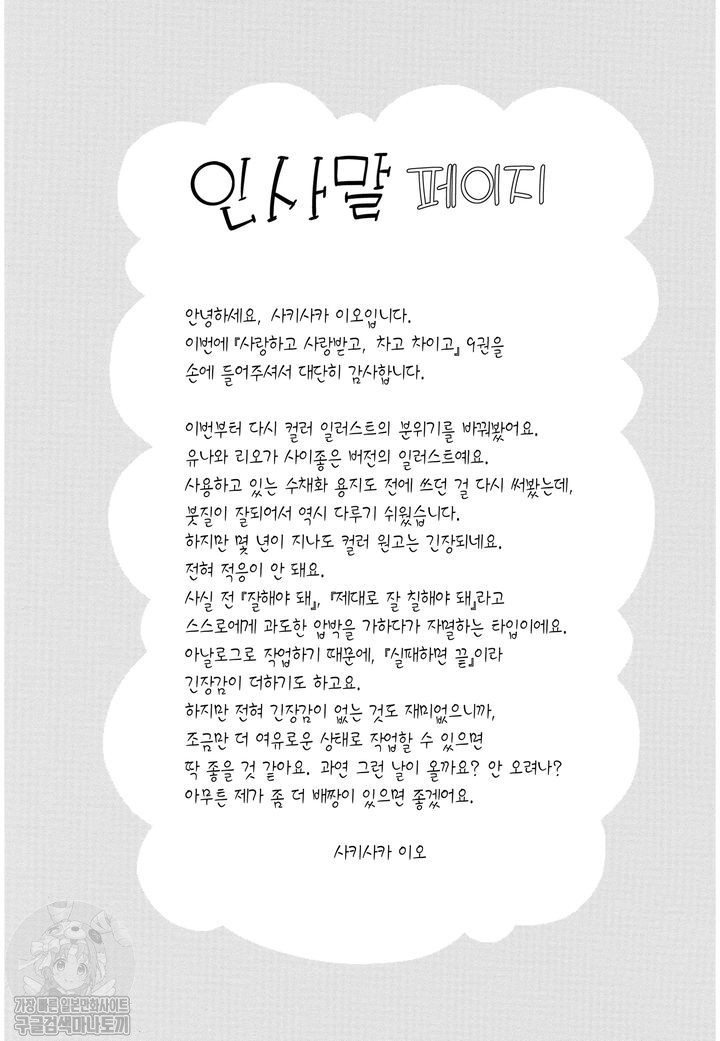 인사말 페이지
안녕하세요, 사키사카 이오입니다.
이번에 『사랑하고 사랑받고, 차고 차이고』 9권을
손에 들어주셔서 대단히 감사합니다.
이번부터 다시 컬러 일러스트의 분위기를 바꿔봤어요.
유나와 리오가 사이좋은 버전의 일러스트예요.
사용하고 있는 수채화 용지도 전에 쓰던 걸 다시 써봤는데,
붓질이 잘되어서 역시 다루기 쉬웠습니다.
하지만 몇 년이 지나도 컬러 원고는 긴장되네요.
전혀 적응이 안 돼요.
사실 전 『잘해야 돼』, 『제대로 잘 칠해야 돼』라고
스스로에게 과도한 압박을 가하다가 자멸하는 타입이에요.
아날로그로 작업하기 때문에, 『실패하면 끝』이라
긴장감이 더하기도 하고요.
하지만 전혀 긴장감이 없는 것도 재미없으니까,
조금만 더 여유로운 상태로 작업할 수 있으면
딱 좋을 것 같아요. 과연 그런 날이 올까요? 안 오려나?
아무튼 제가 좀 더 배짱이 있으면 좋겠어요.
사키사카 이오
가장 빠른 일본만화사이트
구글검색마나토끼